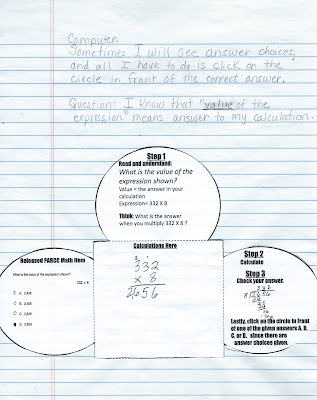 Computer
Sometimes I will see answer choices,
and all I have to do is click on the
circle in front of the correct answer.
Question: I know that "value of the
expression" means answer to my calculation.
Step 1
Read and understand:
What is the value of the
expression shown?
Value = the answer in your
calculation
Expression= 332 X 8
Think: What is the answer
when you multiply 332 X 8 ?
Released PARCC Math Item
What is the value of the expression shown?
332 × 8
A.
B.
C.
D.
Calculations Here
332
x 8
2656
Step 2
Calculate
Step 3
Check your answer.
Lastly, click on the circle in front
of one of the given answers A, B,
C, or D, since there are
answer choices given.